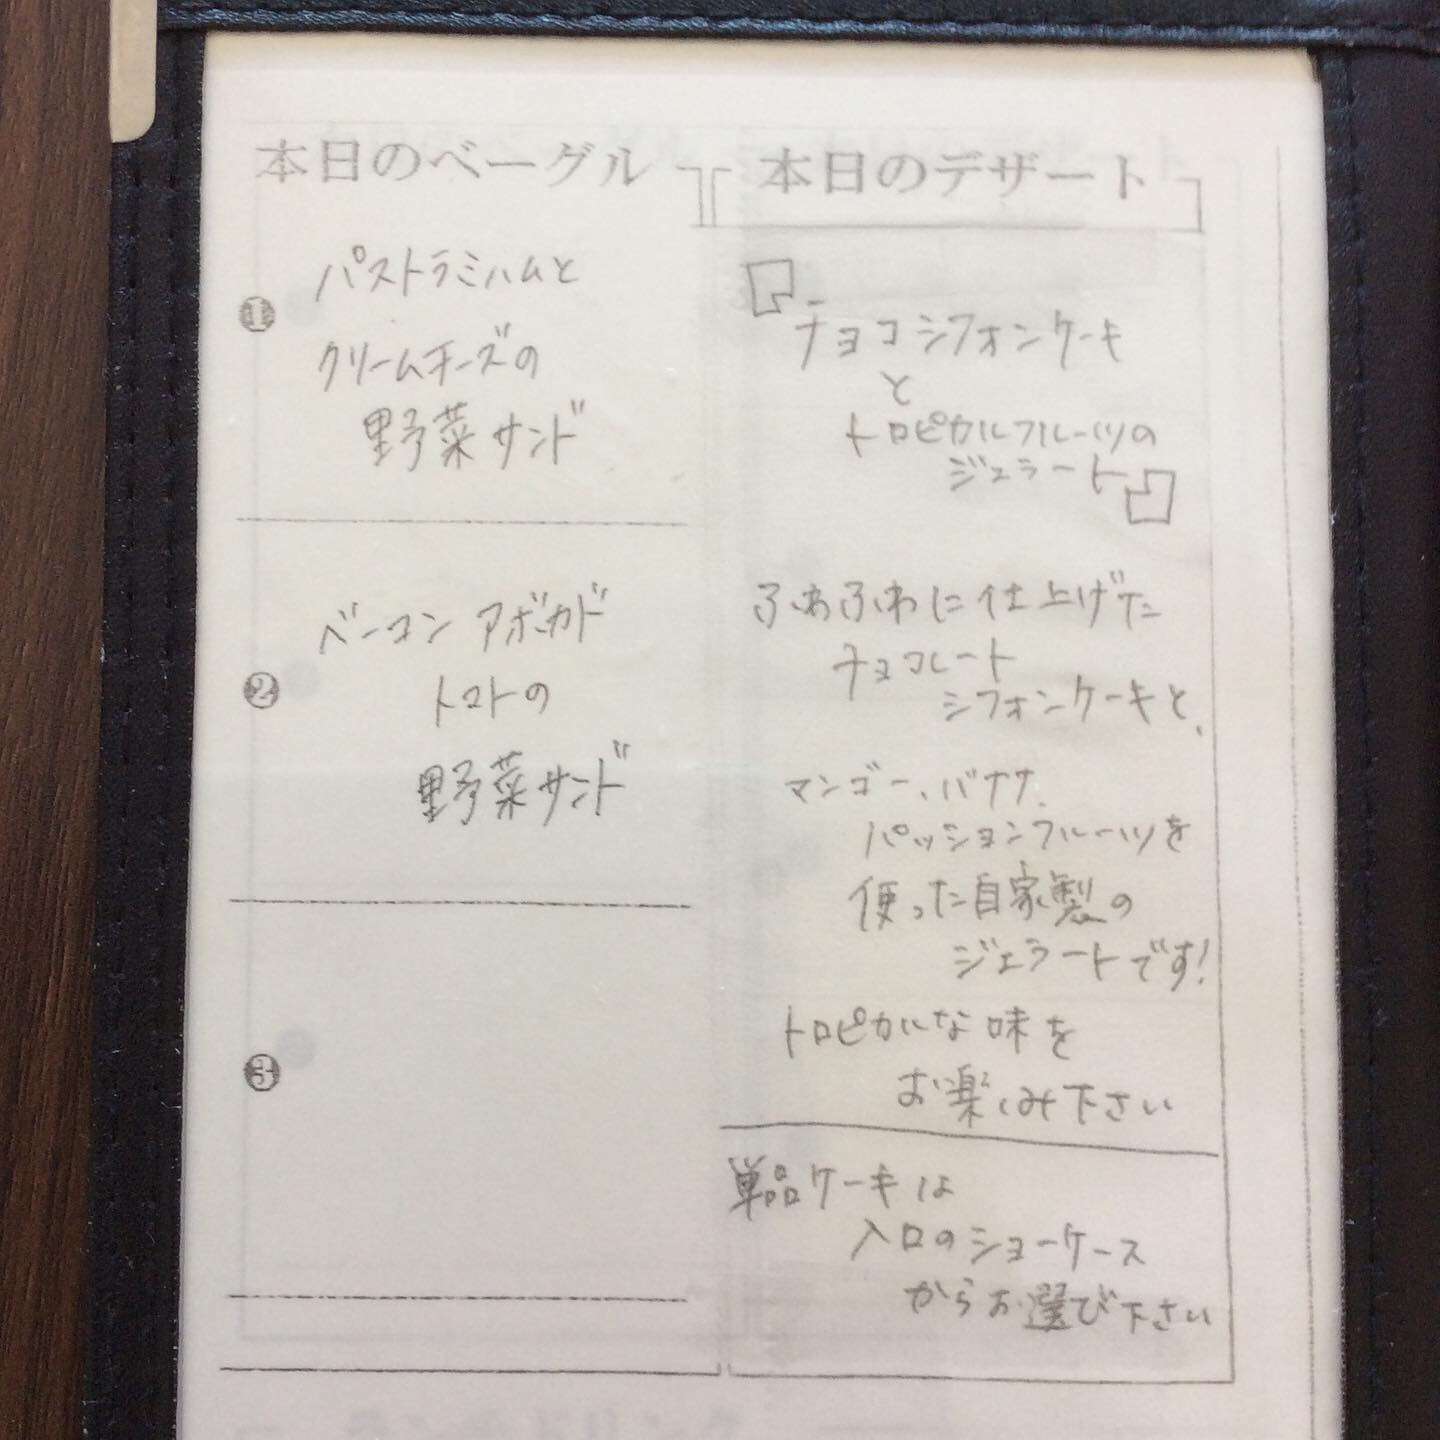 本日のベーグル
❶
パストラミハムと
クリームチーズの
野菜サンド
❷
ベーコン アボカド
トマトの
野菜サンド
❸
本日のデザート
チョコシフォンケーキ
と
トロピカルフルーツの
ジェラート
ふわふわに仕上げた
チョコレート
シフォンケーキと、
マンゴー、バナナ、
パッションフルーツを
使った自家製の
ジェラートです!
トロピカルな味を
お楽しみ下さい
単品ケーキは
入口のショーケース
からお選び下さい